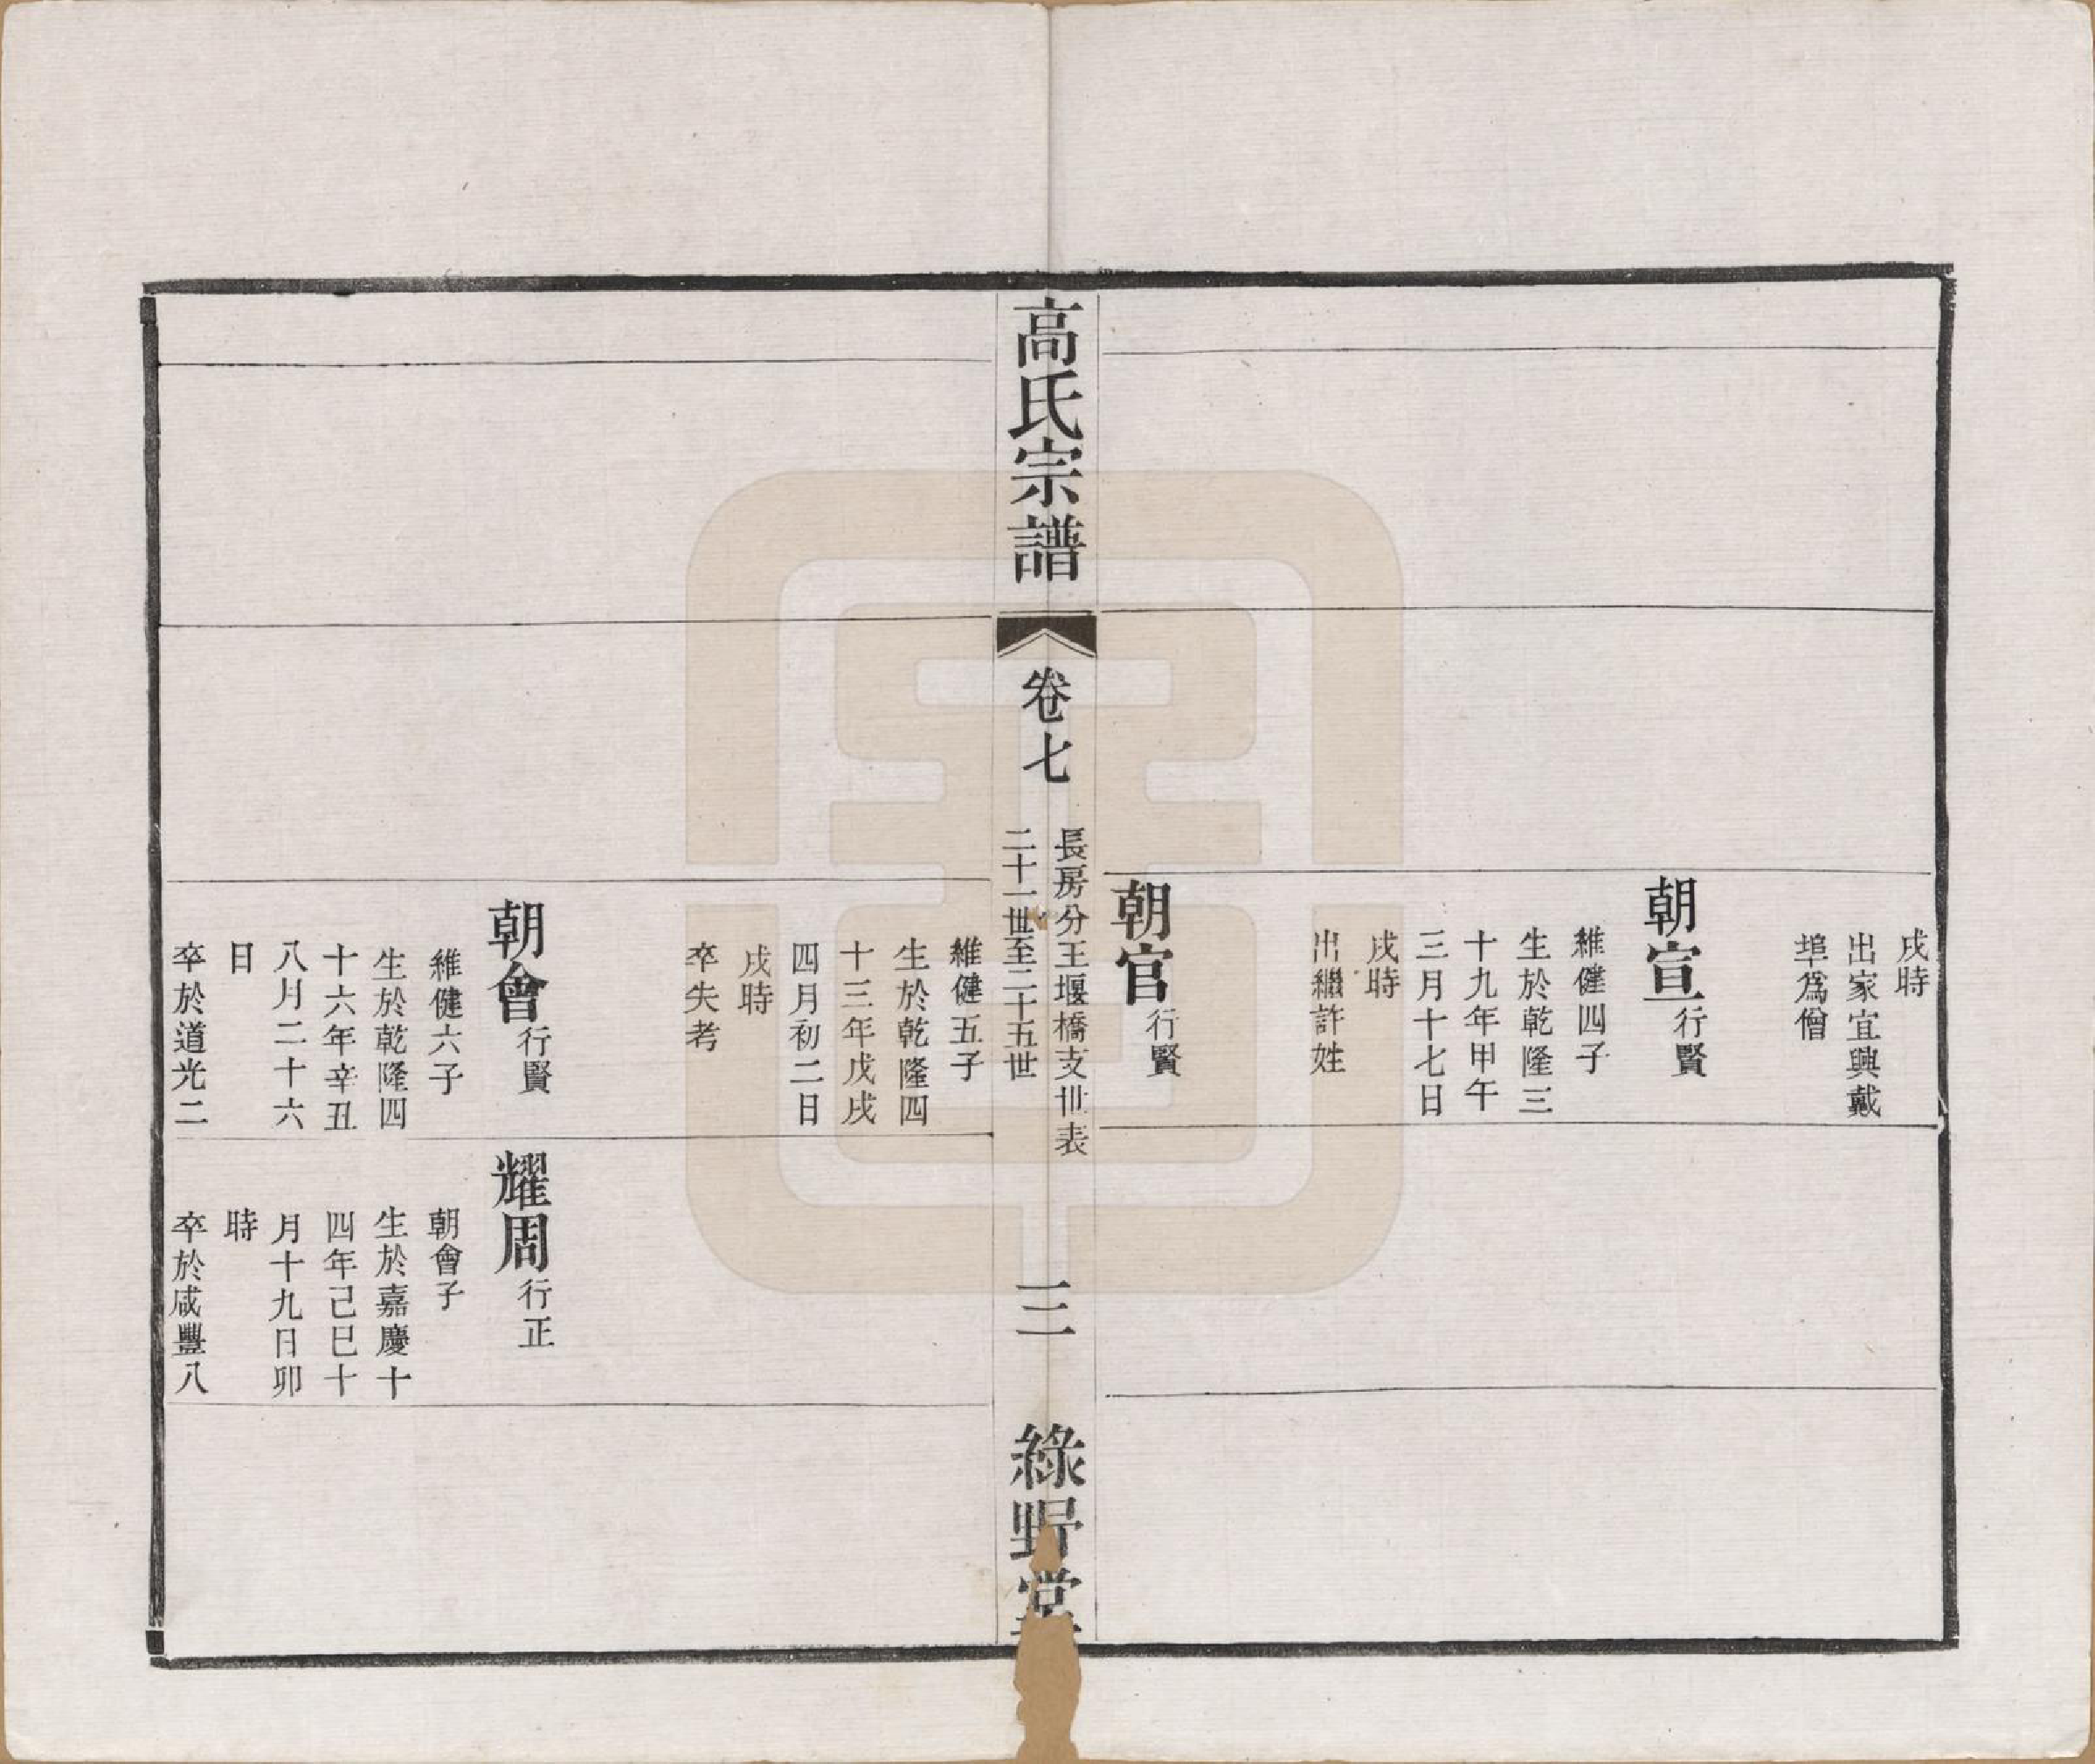 戌時
出家宜興戴
埠爲僧
朝宣行賢
維健四子
生於乾隆三
十九年甲午
三月十七日
戌時
出繼許姓
朝官行賢
高氏宗譜
卷七
長房分王堰橋支世表
二十一世至二十五世
三
綠野堂
維健五子
生於乾隆四
十三年戊戌
四月初二日
戌時
卒失考
朝會行賢
維健六子
生於乾隆四
十六年辛丑
八月二十六
日
卒於道光二
耀周行正
朝會子
生於嘉慶十
四年己巳十
月十九日卯
時
卒於咸豐八